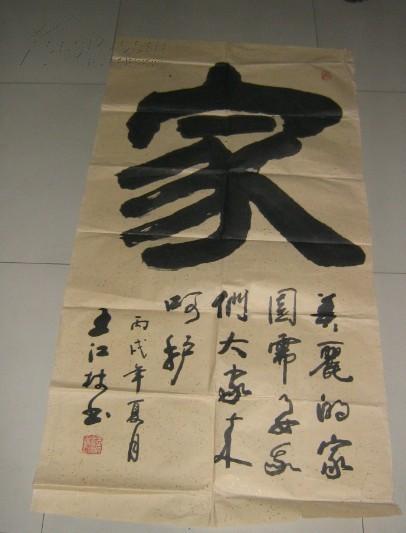 家
美麗的家
園需要我
們大家来
呵护
丙戌年夏月
王江
书